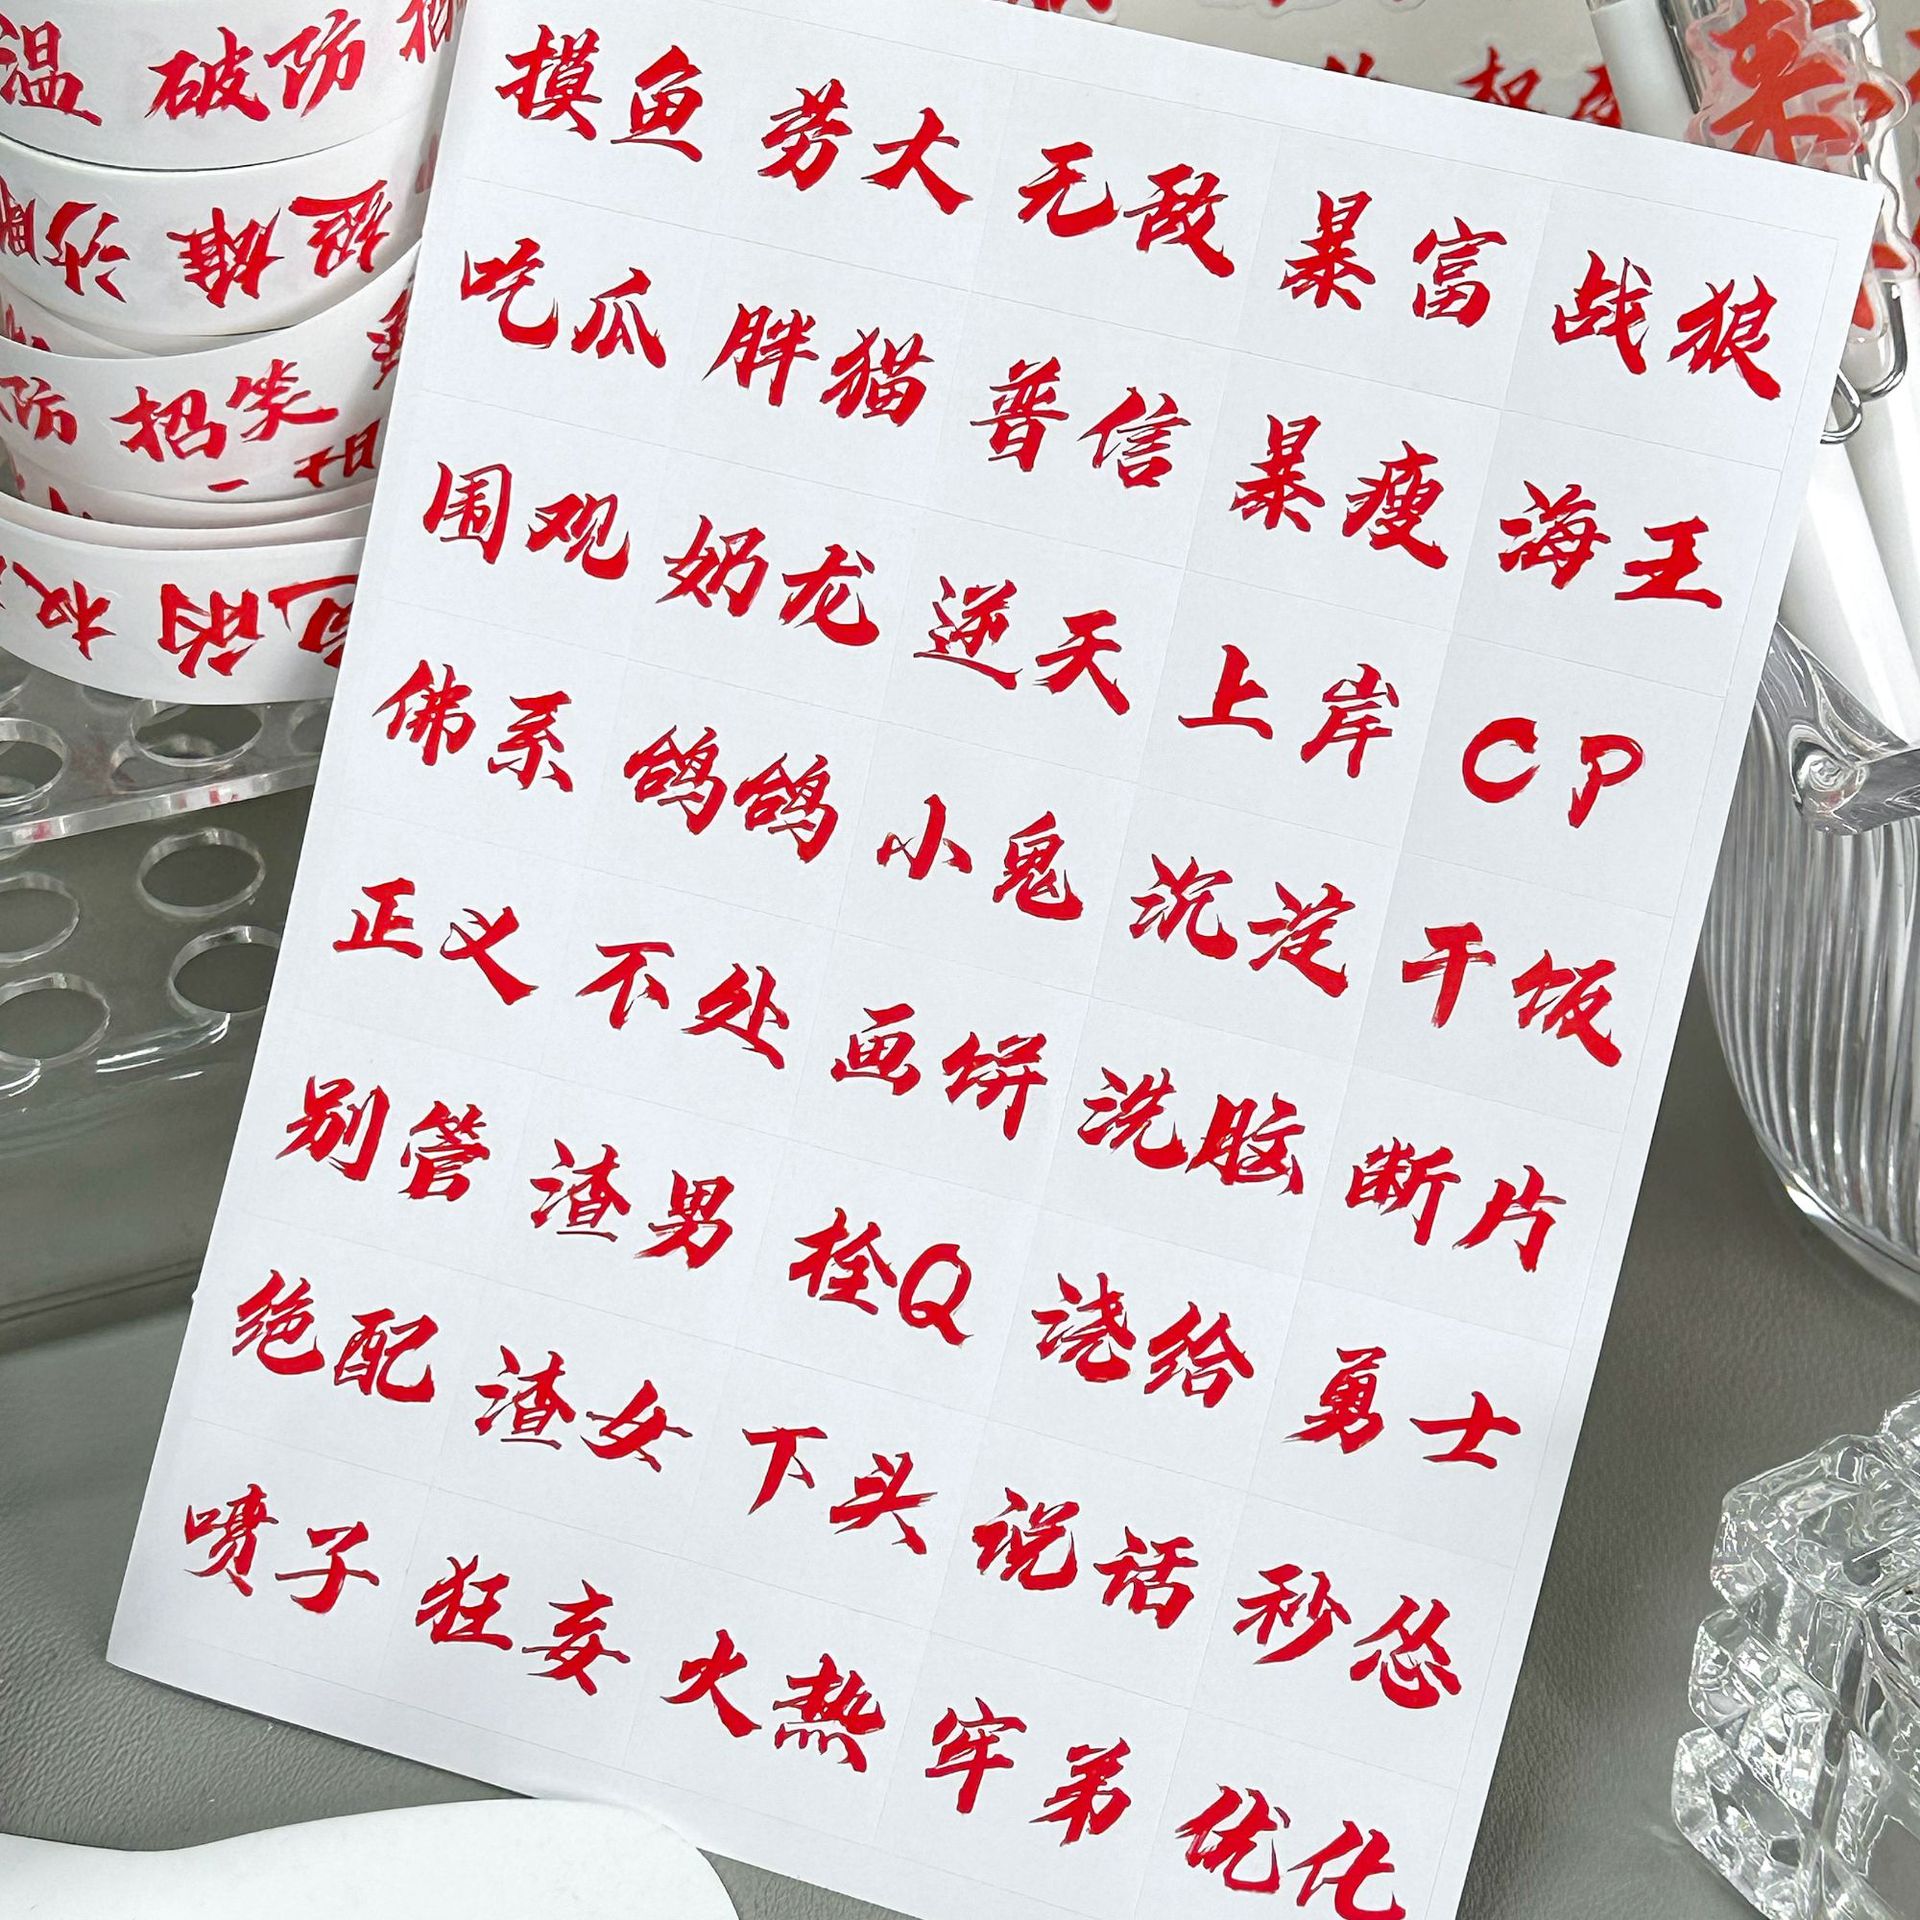 温 破防
招笑
摸鱼 劳大 无敌 暴富 战狼
吃瓜 胖猫 普信 暴瘦 海王
围观 奶龙 逆天 上岸 CP
佛系 鸽鸽 小鬼 沉淀 干饭
正义 不处 画饼 洗脑 断片
别管 渣男 栓Q 浇给 勇士
绝配 渣女 下头 说话 秒怂
喷子 狂妄 火热 牢弟 优化